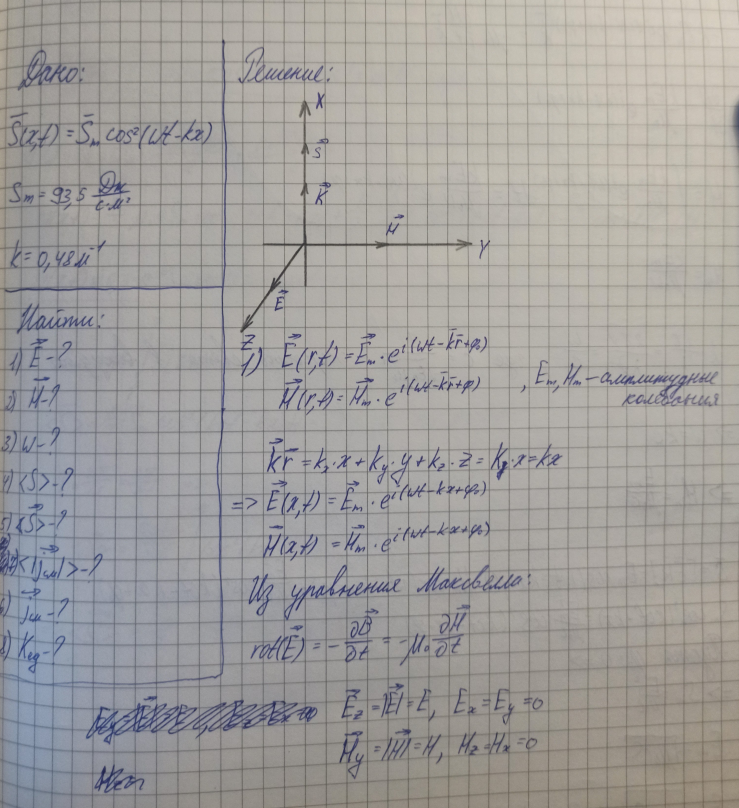 Дано:
S⃗(x,t) = S⃗m cos²(ωt-kx)
Sm = 93,5 Дж/с·м²
k = 0,48 м⁻¹
Найти:
1) E⃗ - ?
2) H⃗ - ?
3) ω - ?
4) <S> - ?
5) <S⃗> - ?
7) <|j⃗см|> - ?
6) j⃗см - ?
8) Kед - ?
Решение:
X
S⃗
K⃗
H⃗
Y
E⃗
Z
1) E⃗(r,t) = E⃗m · e^i(ωt-k̄r̄+φ₀)
H⃗(r,t) = H⃗m · e^i(ωt-k̄r̄+φ₀) , Em, Hm – амплитудные
колебания
k⃗r̄ = kx·x + ky·y + kz·z = kx·x = kx
=> E⃗(x,t) = E⃗m · e^i(ωt-kx+φ₀)
H⃗(x,t) = H⃗m · e^i(ωt-kx+φ₀)
Из уравнения Максвелла:
rot(E⃗) = - ∂B⃗/∂t = -μ₀ ∂H⃗/∂t
E⃗z = |E⃗| = E, Ex = Ey = 0
H⃗y = |H⃗| = H, Hz = Hx = 0